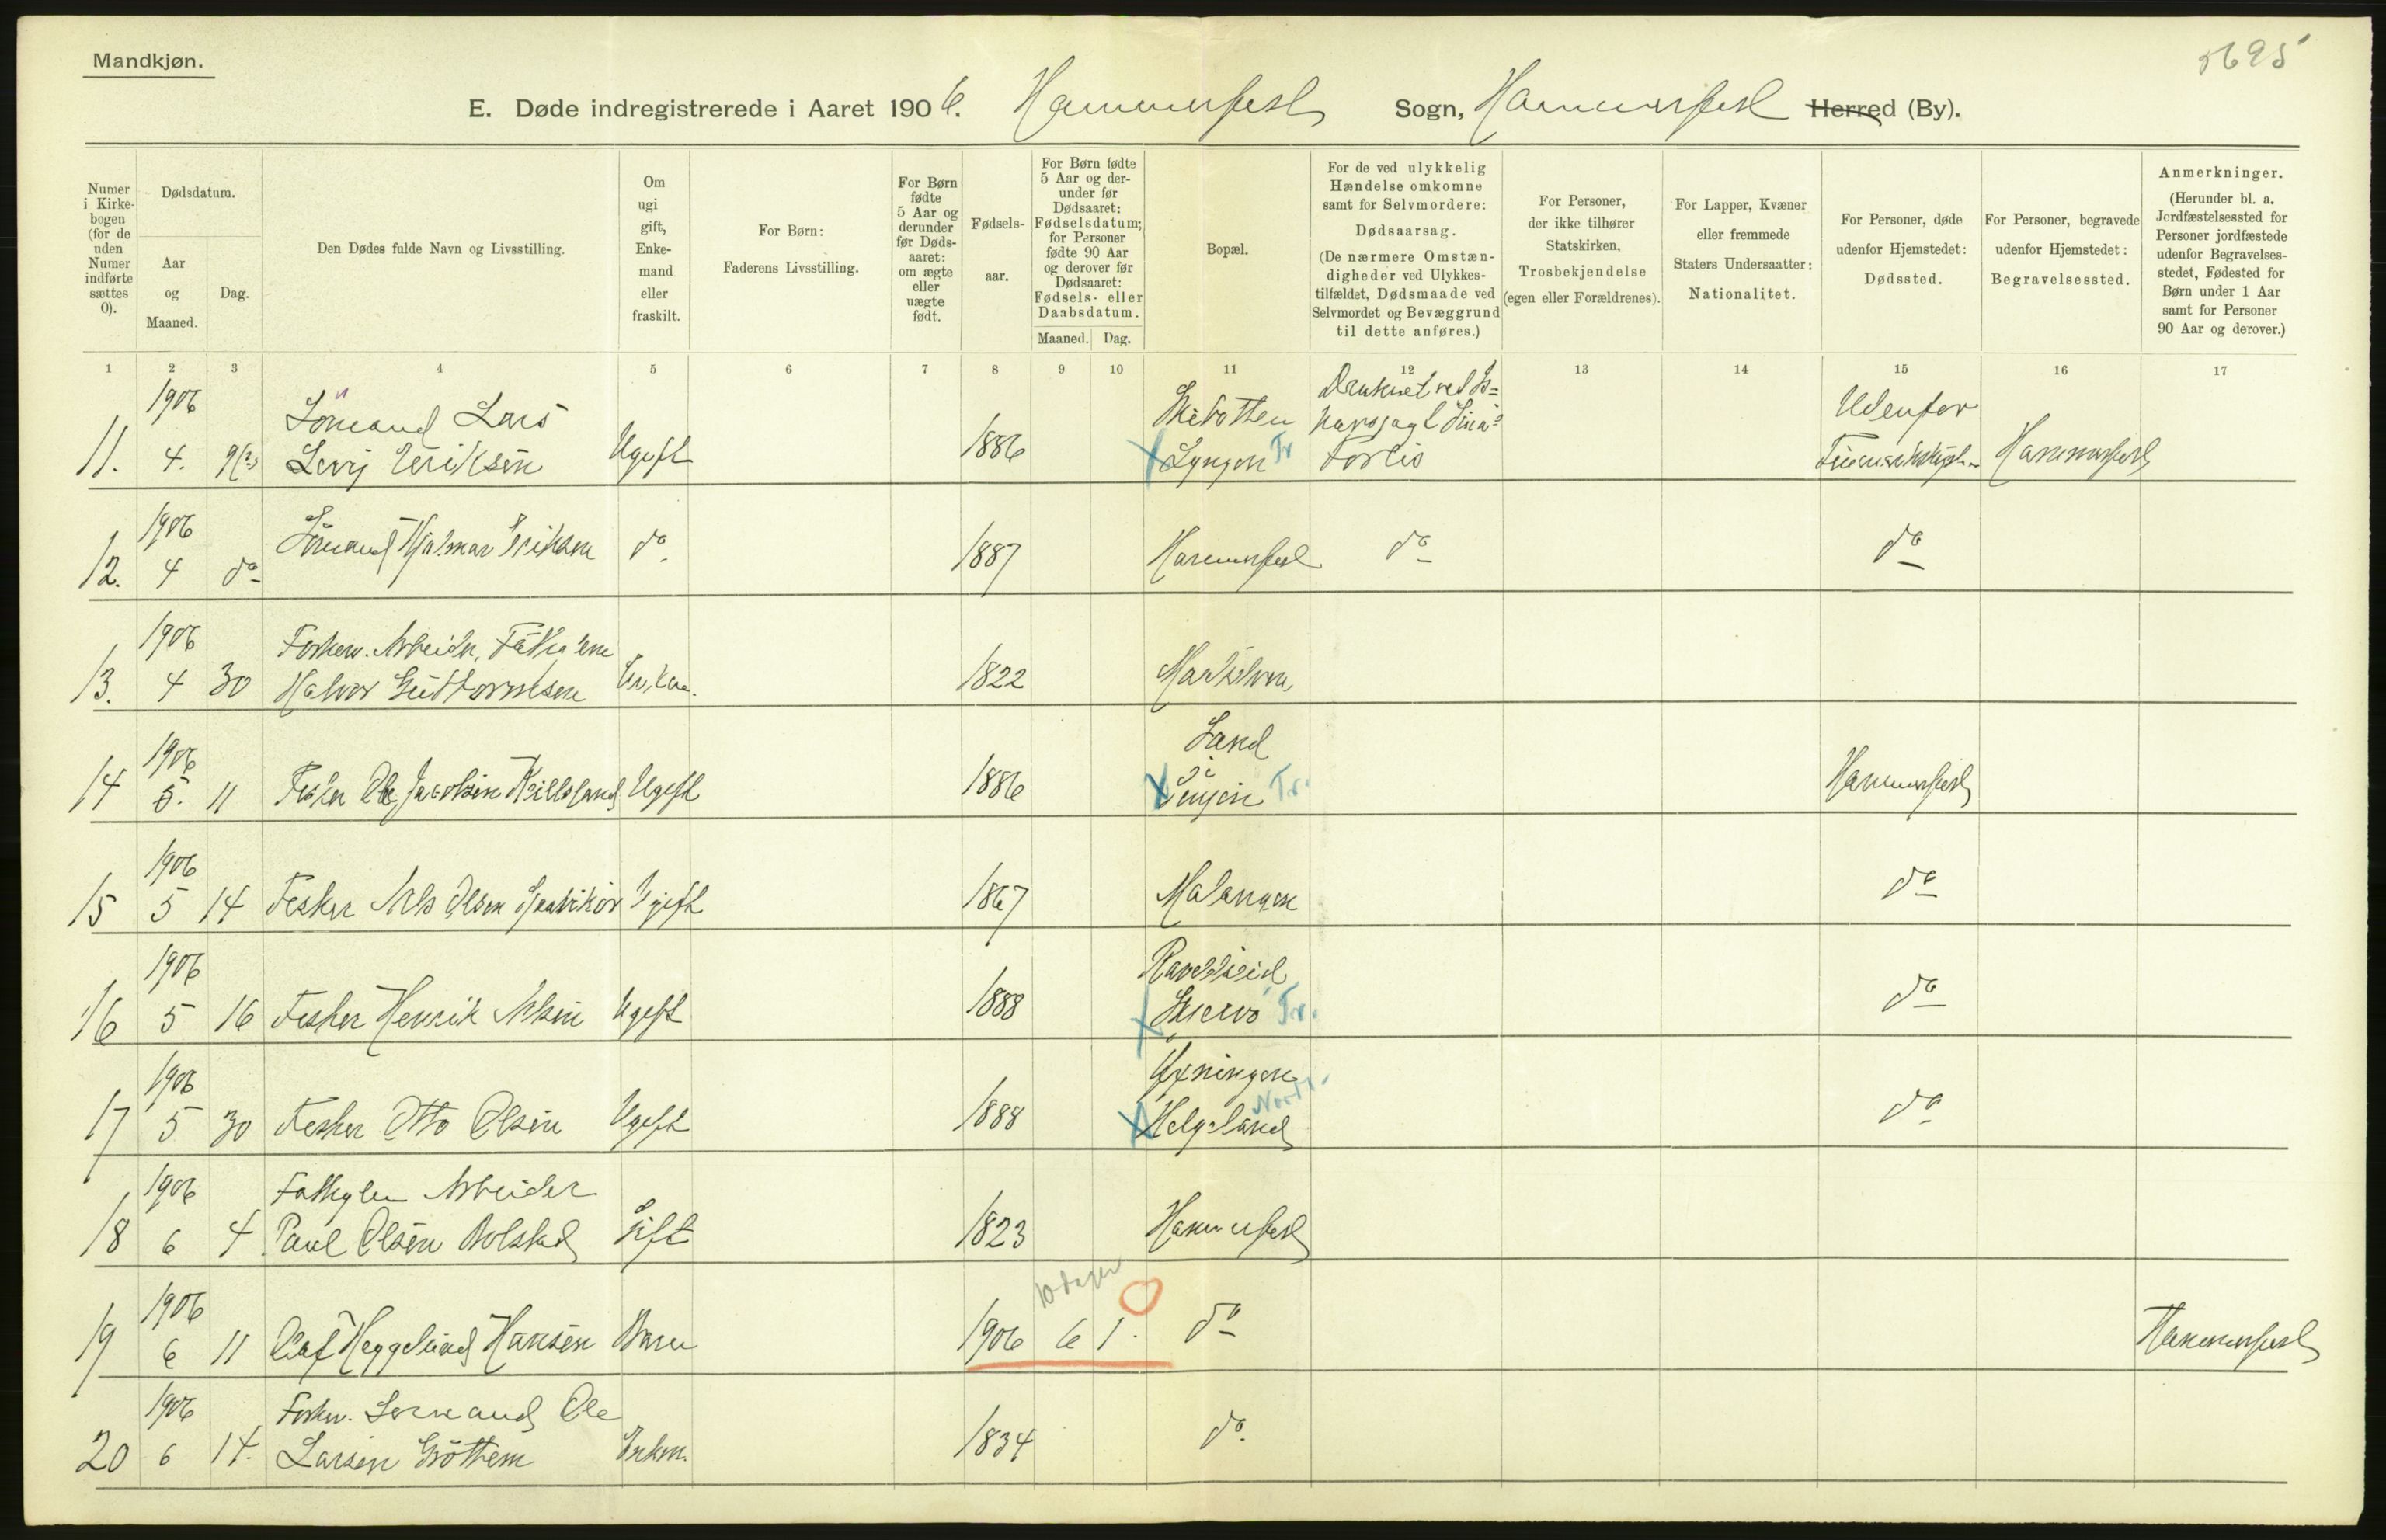 Mandkjøn.
5695
E. Døde indregistrerede i Aaret 1906. Hammerfest Sogn, Hammerfest Herred (By).
Numer i Kirkebogen (for de uden Numer indførte sættes 0).
Dødsdatum.
Aar og Maaned.
Dag.
Den Dødes fulde Navn og Livsstilling.
Om ugift, gift, Enkemand eller fraskilt.
For Børn: Faderens Livsstilling.
For Børn fødte 5 Aar og derunder før Dødsaaret: om ægte eller uægte født.
Fødselsaar.
For Børn fødte 5 Aar og derunder før Dødsaaret: Fødselsdatum; for Personer fødte 90 Aar og derover før Dødsaaret: Fødsels- eller Daabsdatum.
Maaned. Dag.
Bopæl.
For de ved ulykkelig Hændelse omkomne samt for Selvmordere: Dødsaarsag. (De nærmere Omstændigheder ved Ulykkestilfældet, Dødsmaade ved Selvmordet og Bevæggrund til dette anføres.)
For Personer, der ikke tilhører Statskirken, Trosbekjendelse (egen eller Forældrenes).
For Lapper, Kvæner eller fremmede Staters Undersaatter: Nationalitet.
For Personer, døde udenfor Hjemstedet: Dødssted.
For Personer, begravede udenfor Hjemstedet: Begravelsessted.
Anmerkninger. (Herunder bl. a. Jordfæstelsessted for Personer jordfæstede udenfor Begravelsesstedet, Fødested for Børn under 1 Aar samt for Personer 90 Aar og derover.)
1 2 3 4 5 6 7 8 9 10 11 12 13 14 15 16 17
1906 Sømand Lars Skibotten Druknet ved Is= Udenfor
11. 4. 9(?) Levy Eriksen Ugift 1886 Lyngen Tr Forlis Hammerfest
1906
12. 4 do Sømand Hjalmar Eriksen do 1887 Hammerfest do do
1906 Forhenv. Arbeider,
13. 4 30 Halvor Guttormsen Enkem. 1822
1906 Sand
14 5. 11 Fisker Ole Jacobsen Ugift 1886 Senjen Tr. Hammerfest
1906
15 5 14 Fisker Nils Olsen Ugift 1867 Malangen do
1906
16 5 16 Fisker Henrik Nilsen Ugift 1888 Skjervø Tr. do
1906
17 5 30 Fisker Otto Olsen Ugift 1888 Helgeland Nordl. do
1906 Fattiglem Arbeider
18 6 4 Paul Olsen Bolstad Gift 1823 Hammerfest
1906 10 dager
19 6 11 Olaf Heggelund Hansen Barn 1906 6 1. do Hammerfest
1906 Forhv. Sømand Ole
20 6 14. Larsen Grøttem Enkm. 1834 do.